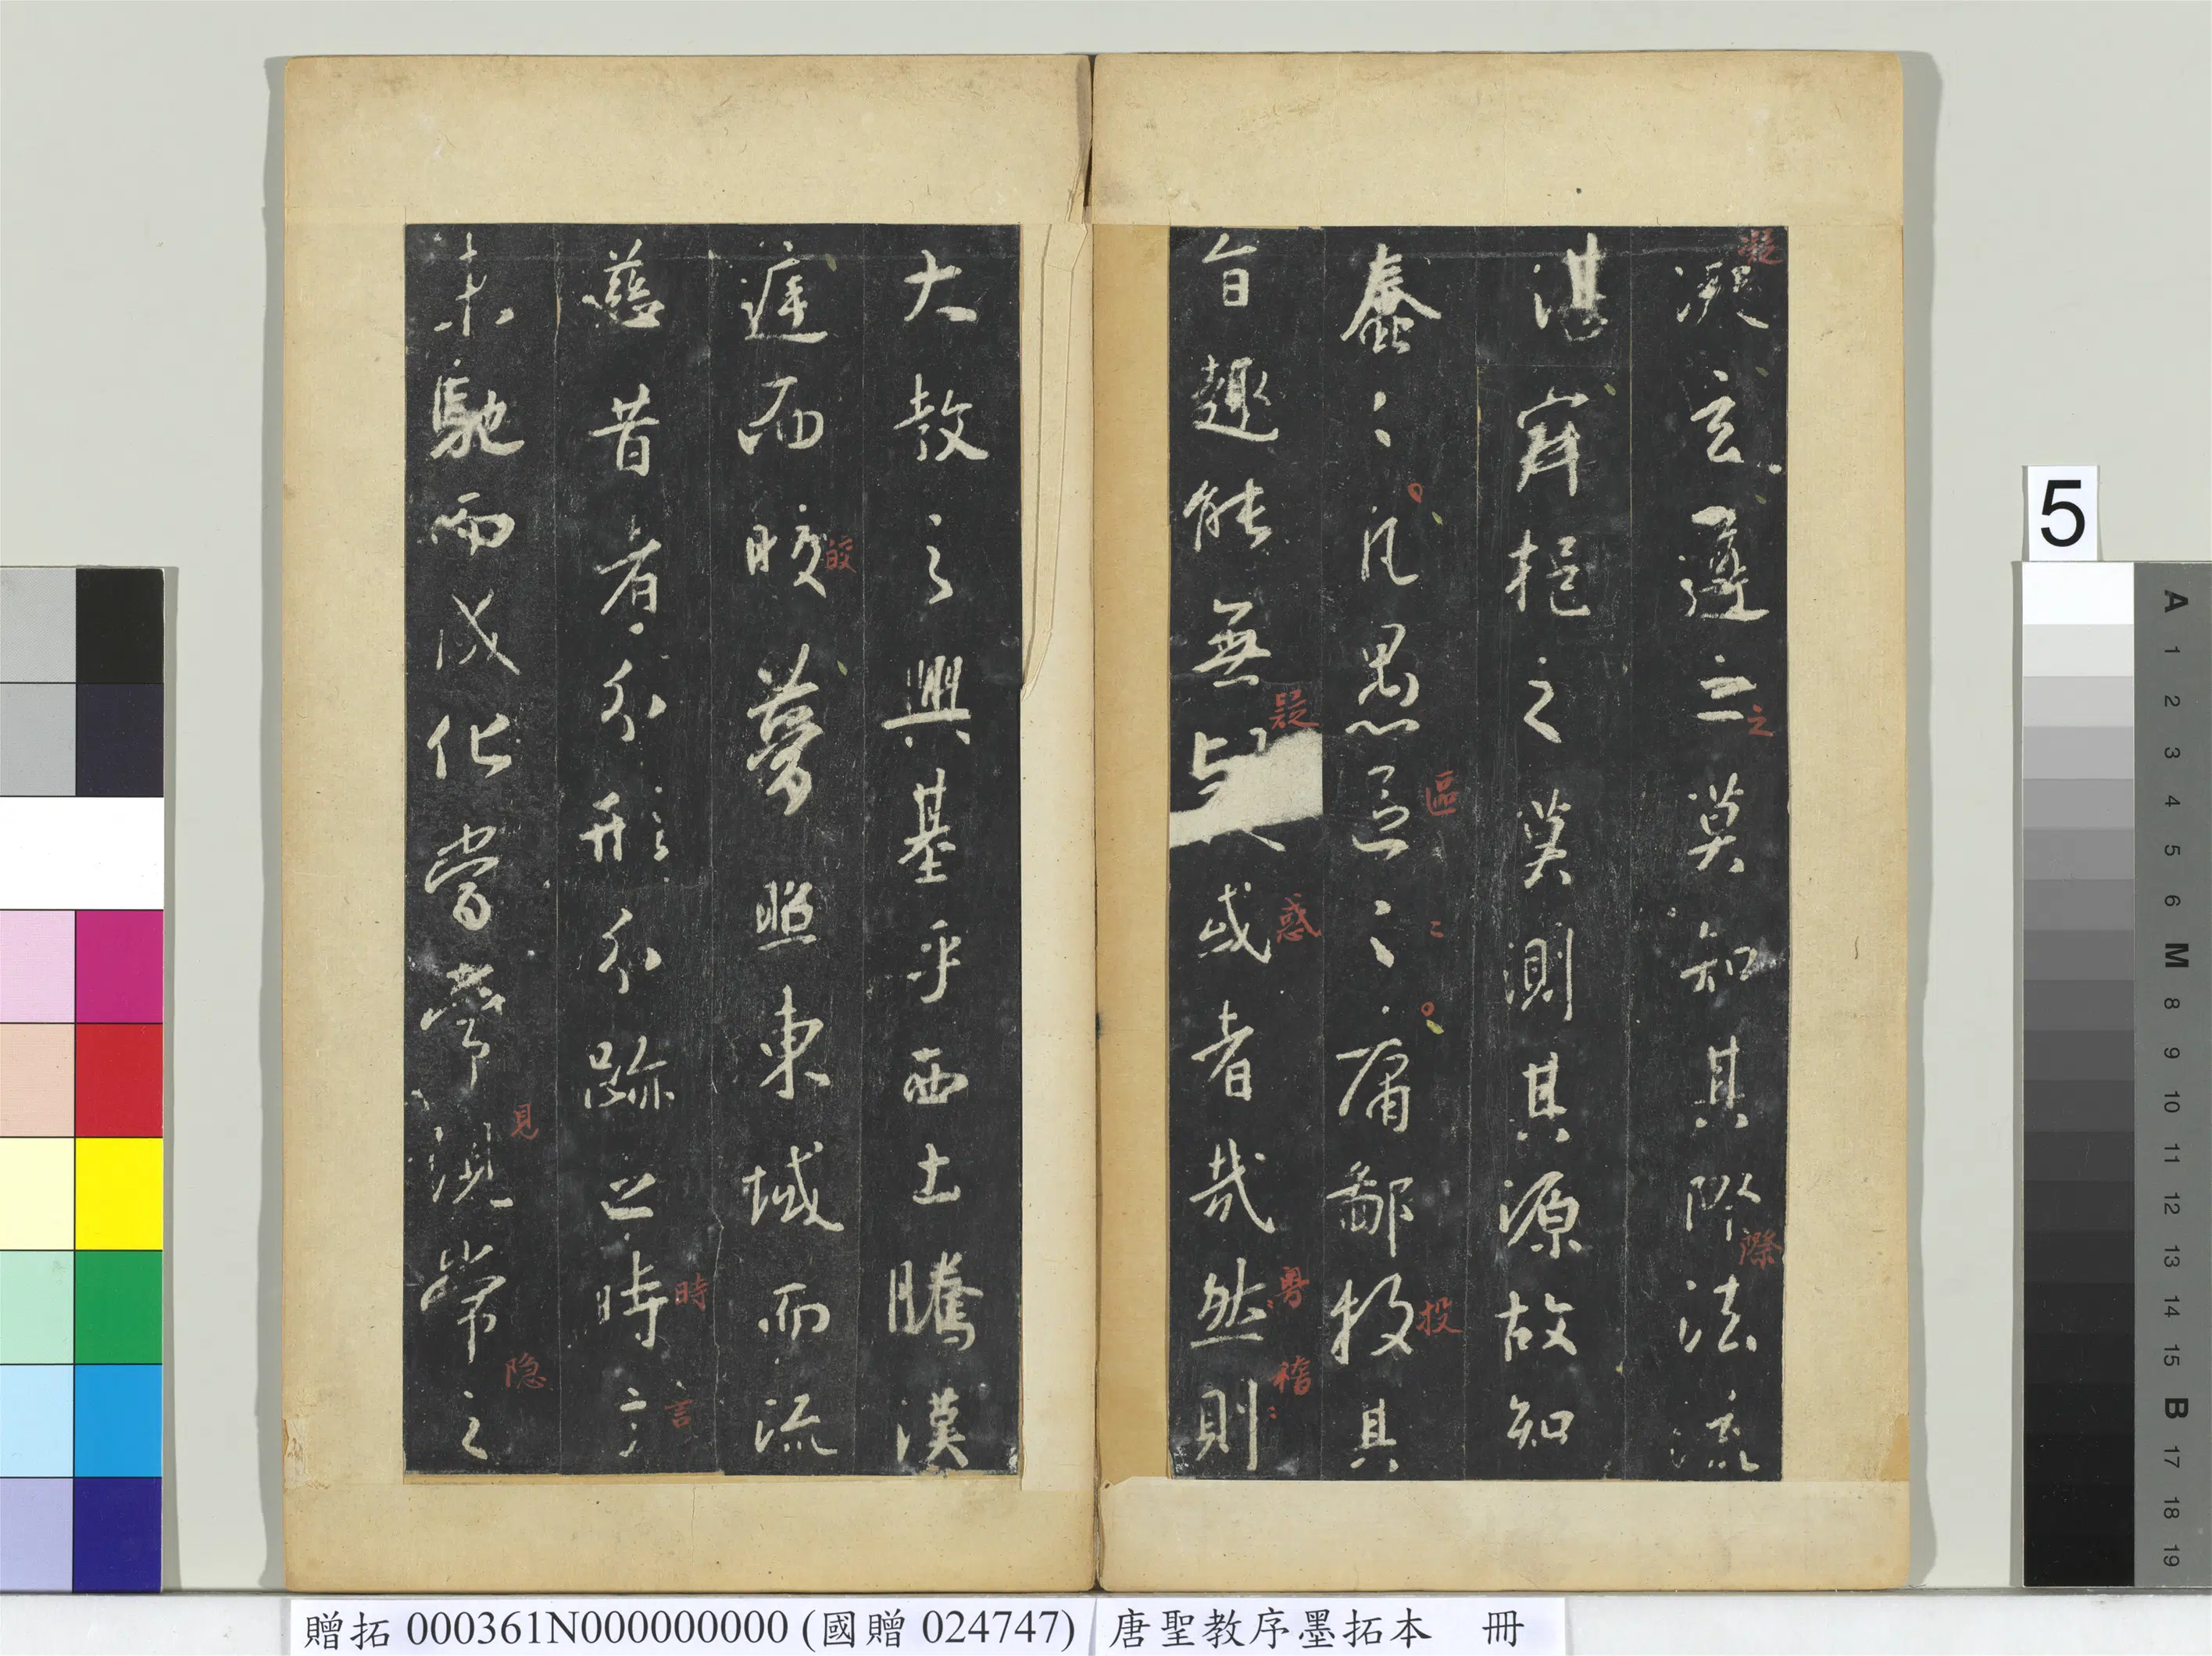 凝玄遵之莫知其際法流
湛寂挹之莫測其源故知
蠢〻凡愚區〻庸鄙投其
旨趣能無疑惑者哉然則
大教之興基乎西土騰漢
庭而皎夢照東域而流
慈昔者分形分跡之時言
未馳而成化當常現常之
凝
之
際
區
〻
投
疑
惑
粵
稽
皎
時
言
見
隐
5
A 1 2 3 4 5 6 M 8 9 10 11 12 13 14 15 B 17 18 19
贈拓 000361N000000000 (國贈 024747) 唐聖教序墨拓本 冊